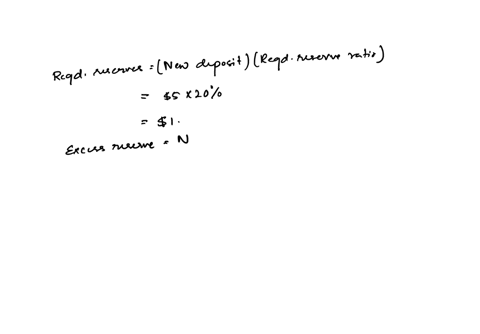 Reqd. reserves = (New deposit) (Reqd. reserve ratio)
= $5 x 20%
= $1.
Excess reserve = N